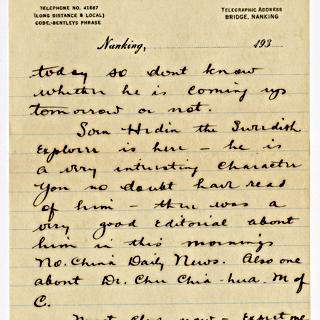 TELEPHONE NO. 41687
(LONG DISTANCE & LOCAL)
CODE-BENTLEYS PHRASE
TELEGRAPHIC ADDRESS
BRIDGE, NANKING
Nanking, 193
today so dont know
whether he is coming up
tomorrow or not.
Sven Hedin the Swedish
Explorer is here – he is
a very intristing character
You no doubt have read
of him – there was a
very good Editorial about
him in this mornings
No. China Daily News. Also one
about Dr. Chu Chia-hua. M of
C.
now – Expect one